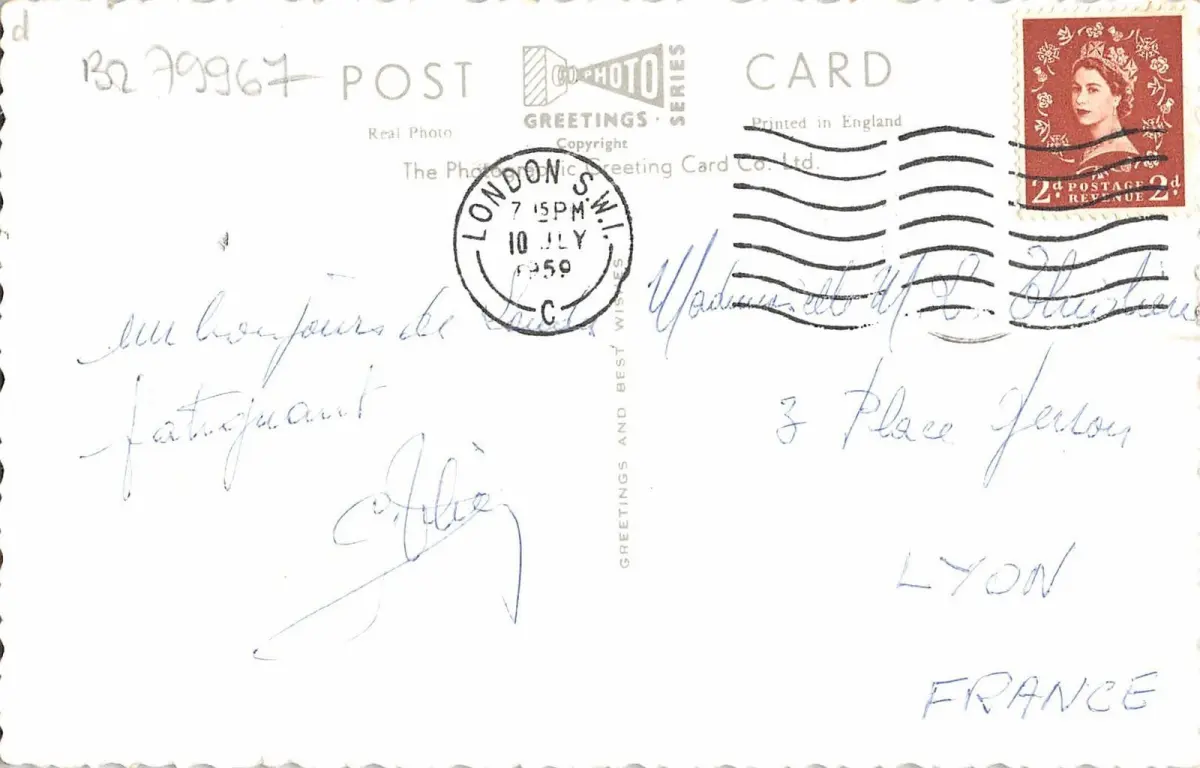 d
B2 79967
POST CARD
PHOTO
GREETINGS · SERIES
Real Photo
Printed in England
Copyright
The Photographic Greeting Card Co. Ltd.
2d. POSTAGE REVENUE 2d.
LONDON S.W.1.
7 15PM
10 JLY
1959
C
GREETINGS AND BEST WISHES
un bonjours de
fatiguant
Mademoiselle M.
3 Place
LYON
FRANCE